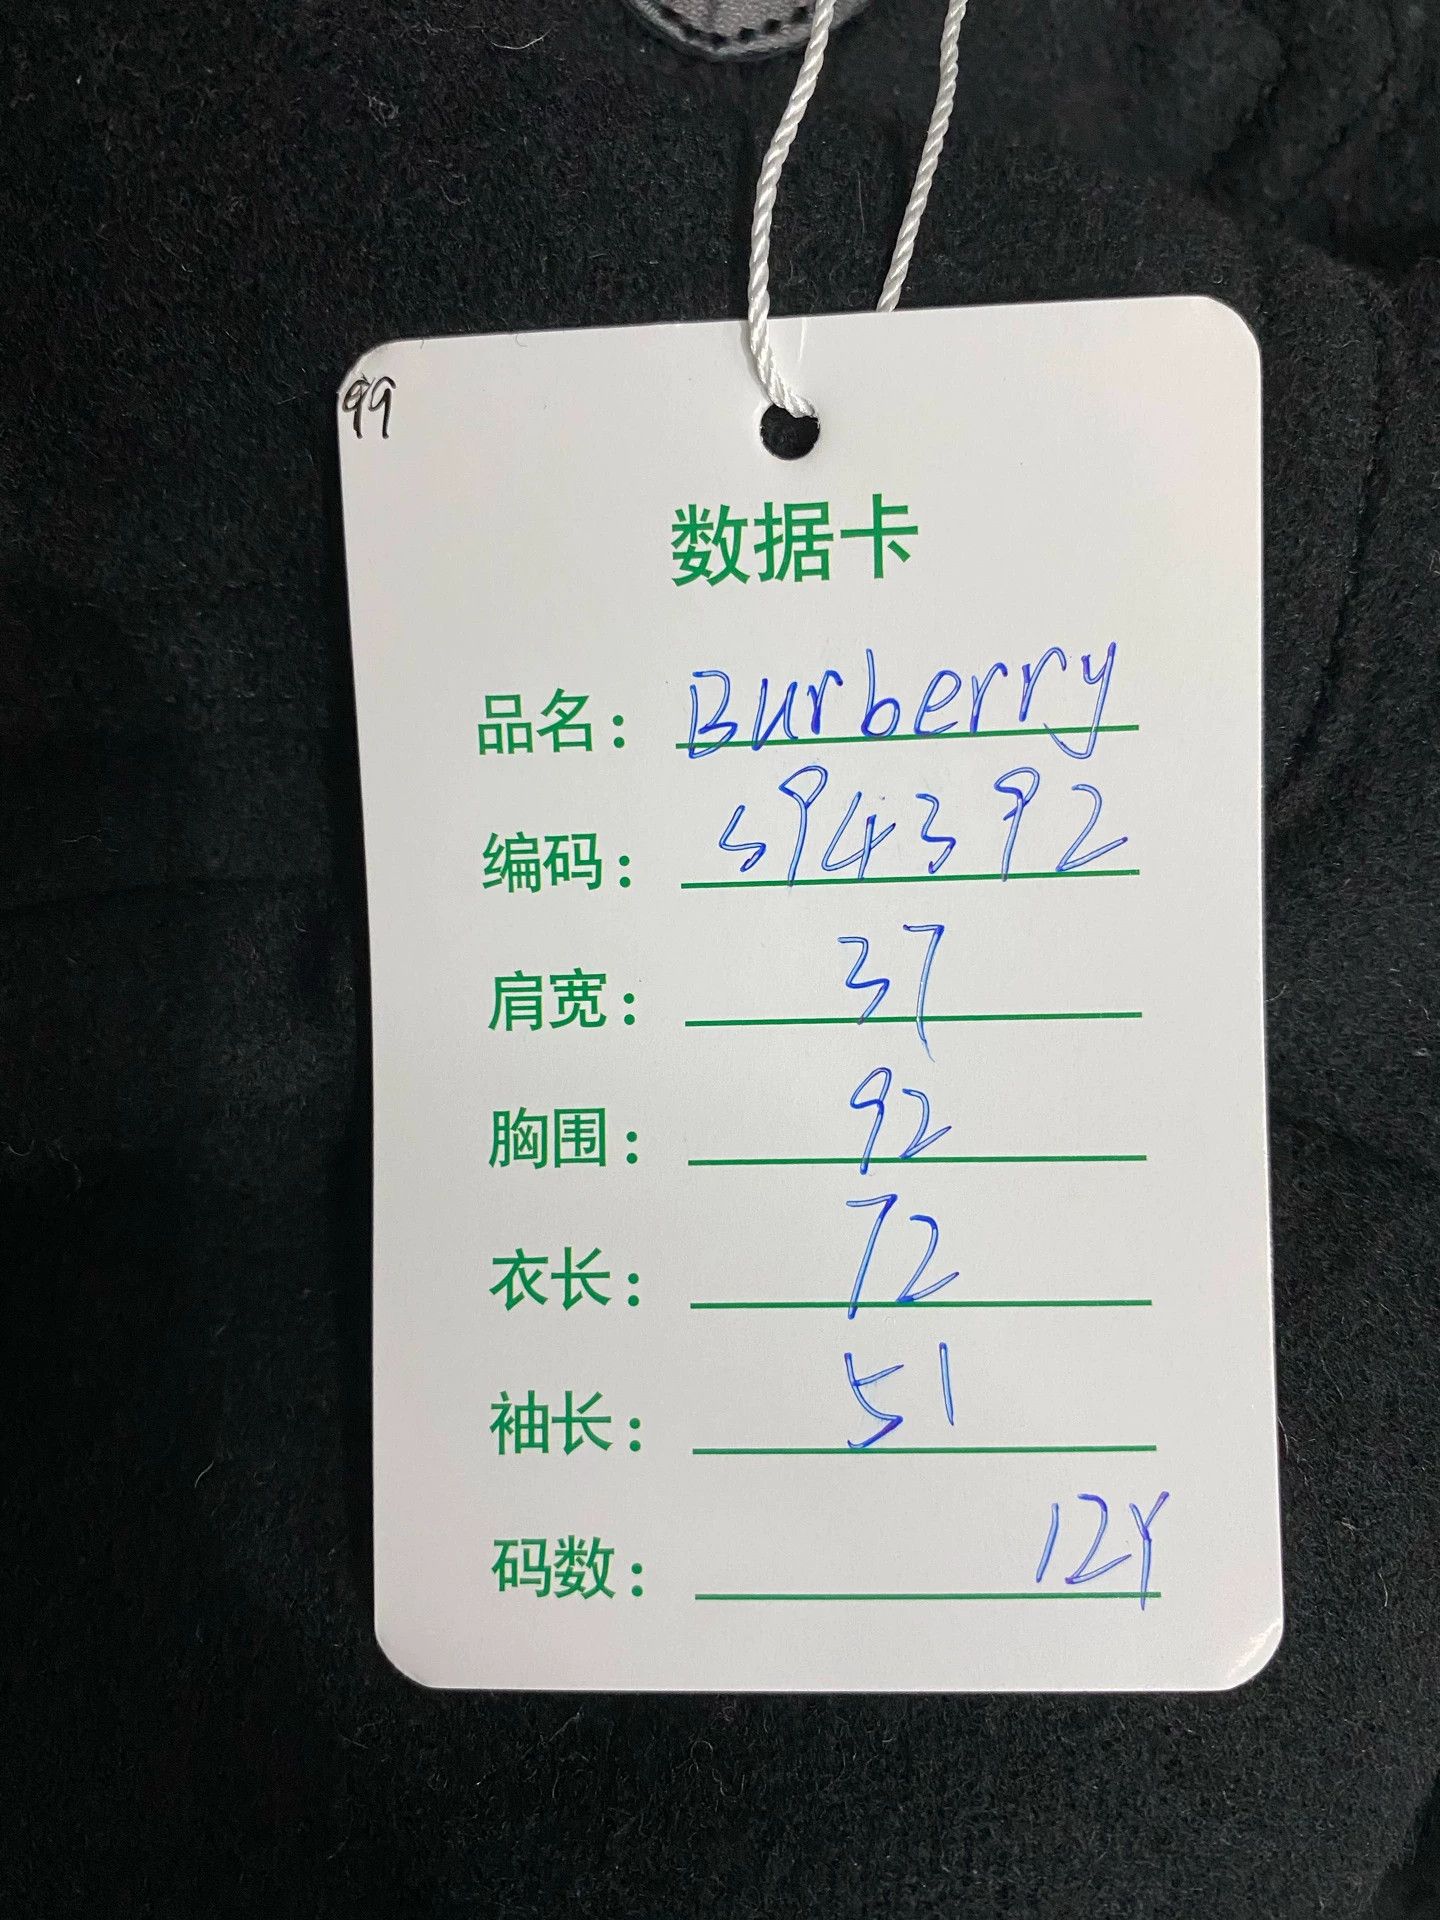 99
数据卡
品名：Burberry
编码：594392
肩宽：37
胸围：92
衣长：72
袖长：51
码数：12Y